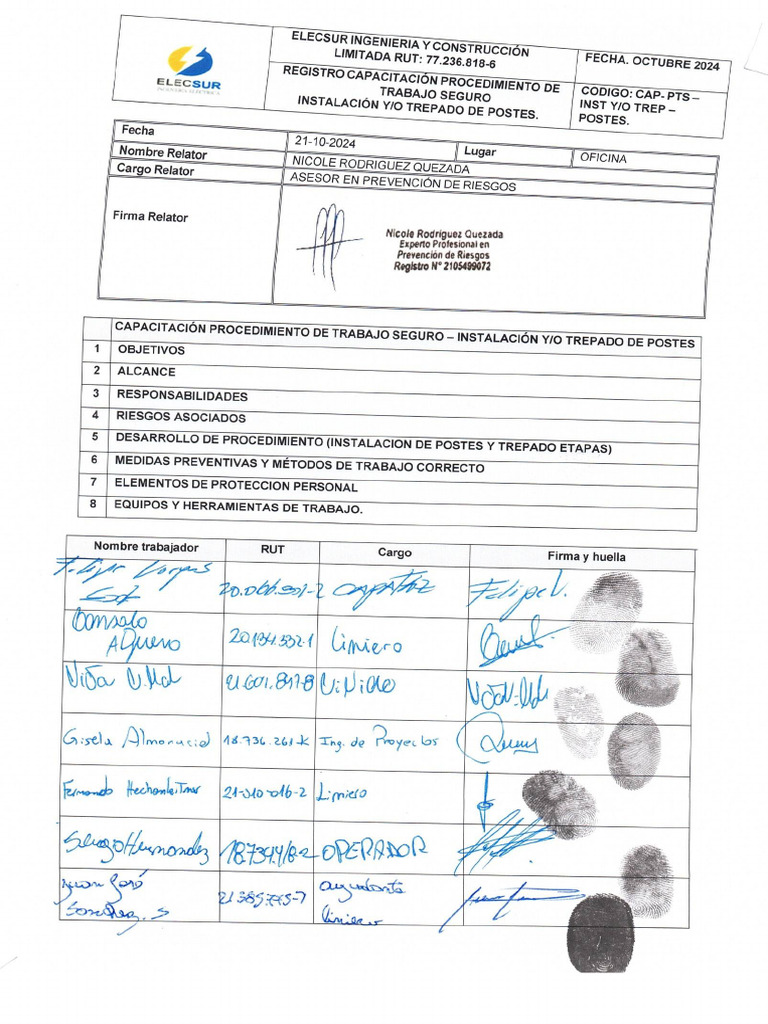 ELECSUR
INGENIERIA ELECTRICA
ELECSUR INGENIERIA Y CONSTRUCCIÓN
LIMITADA RUT: 77.236.818-6
REGISTRO CAPACITACIÓN PROCEDIMIENTO DE
TRABAJO SEGURO
INSTALACIÓN Y/O TREPADO DE POSTES.
FECHA. OCTUBRE 2024
CODIGO: CAP- PTS –
INST Y/O TREP –
POSTES.
Fecha 21-10-2024 Lugar OFICINA
Nombre Relator NICOLE RODRIGUEZ QUEZADA
Cargo Relator ASESOR EN PREVENCIÓN DE RIESGOS
Firma Relator
Nicole Rodríguez Quezada
Experto Profesional en
Prevención de Riesgos
Registro N° 2105499072
CAPACITACIÓN PROCEDIMIENTO DE TRABAJO SEGURO – INSTALACIÓN Y/O TREPADO DE POSTES
1 OBJETIVOS
2 ALCANCE
3 RESPONSABILIDADES
4 RIESGOS ASOCIADOS
5 DESARROLLO DE PROCEDIMIENTO (INSTALACION DE POSTES Y TREPADO ETAPAS)
6 MEDIDAS PREVENTIVAS Y MÉTODOS DE TRABAJO CORRECTO
7 ELEMENTOS DE PROTECCION PERSONAL
8 EQUIPOS Y HERRAMIENTAS DE TRABAJO.
Nombre trabajador RUT Cargo Firma y huella
Felipe Vargas CAPATAZ Felipe V.
Gonzalo 20.134.332-1 Liniero
21.601.847-8
Gisela Almonacid 18.736.261-K Ing. de Proyectos
Fernando 21-010-016-2 Liniero
Sergio Hernandez OPERADOR
Juan José ayudante
Sanchez. S liniero